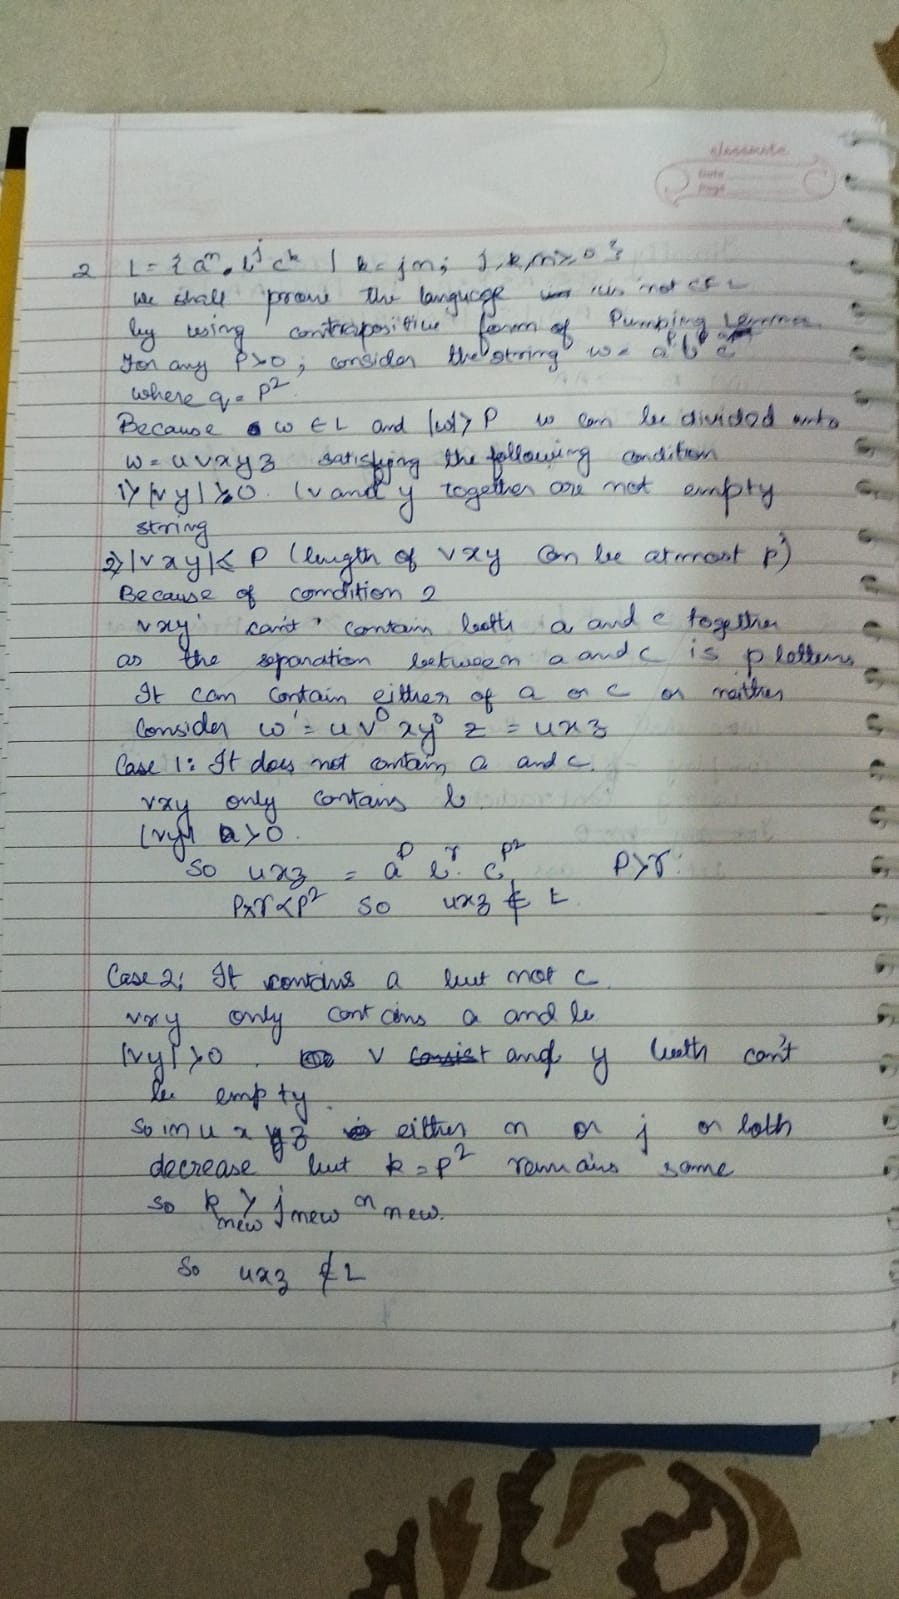 classmate
Date
Page
2 L = { a^n . b^j c^k | k = jn; j, k, n ≥ 0 }
We shall prove the language is not CFL
by using contrapositive form of Pumping Lemma
For any P>0; consider the string w = a^p b^p c^q
where q = p^2
Because w ∈ L and |w| > P w can be divided into
w = uvxyz satisfying the following condition
1) |vy| > 0. (v and y together are not empty
string
2) |vxy| ≤ P (length of vxy can be atmost p)
Because of condition 2
vxy can't contain both a and c together
as the separation between a and c is p letters
It can contain either of a or c or neither
Consider w' = u v^0 x y^0 z = uxz
Case 1: It does not contain a and c.
vxy only contains b.
|vy| > 0.
So uxz = a^p b^r c^p^2 P > r
P x r < p^2 so uxz ∉ L
Case 2: It contains a but not c.
vxy only contains a and b
|vy| > 0. v and y both can't
be empty.
So in u x z either n or j or both
decrease but k = p^2 remains same
So k new > j new n new.
So uxz ∉ L